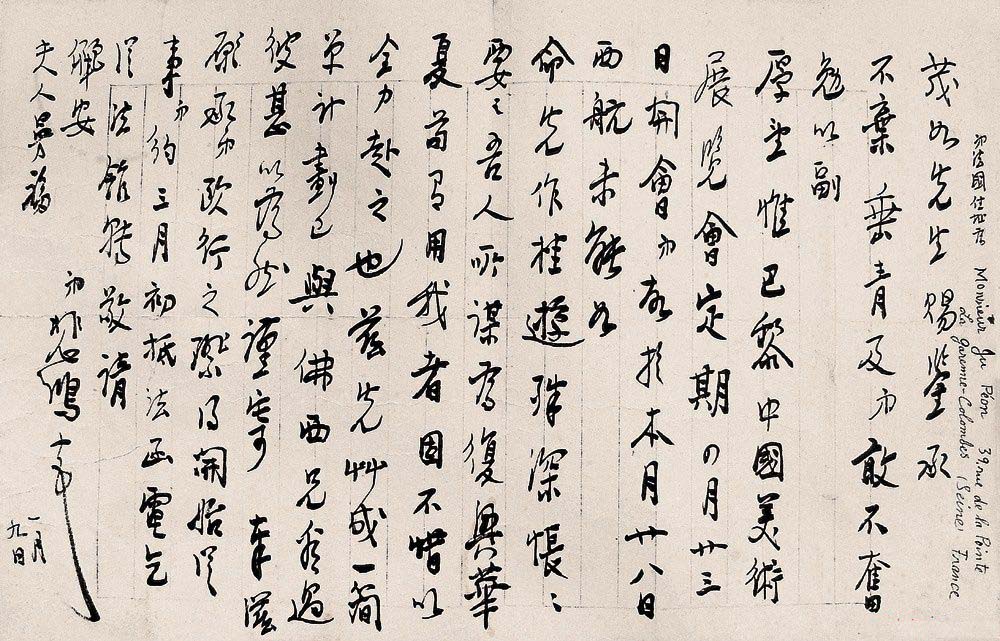 弟法國住址 Monsieur Ju Péon 39, rue de la Pointe
La Garenne-Colombes (Seine) France
茂如先生賜鑒承
不棄垂青及弟敢不奮
勉以副
厚望惟巴黎中國美術
展覽會定期の月廿三
日開會弟故於本月廿八日
西航未能如
命先作桂遊殊深悵〻
要之吾人所謀為復興華
夏苟有用我者固不惜以
全力赴之也茲先艸成一簡
單計劃已與佛西兄看過
彼甚以為然謹寄奉
願承弟歐行之際得開始從
事弟約三月初抵法函電乞
從法館轉敬請
安
夫人曼福
弟悲鴻
一月
九日